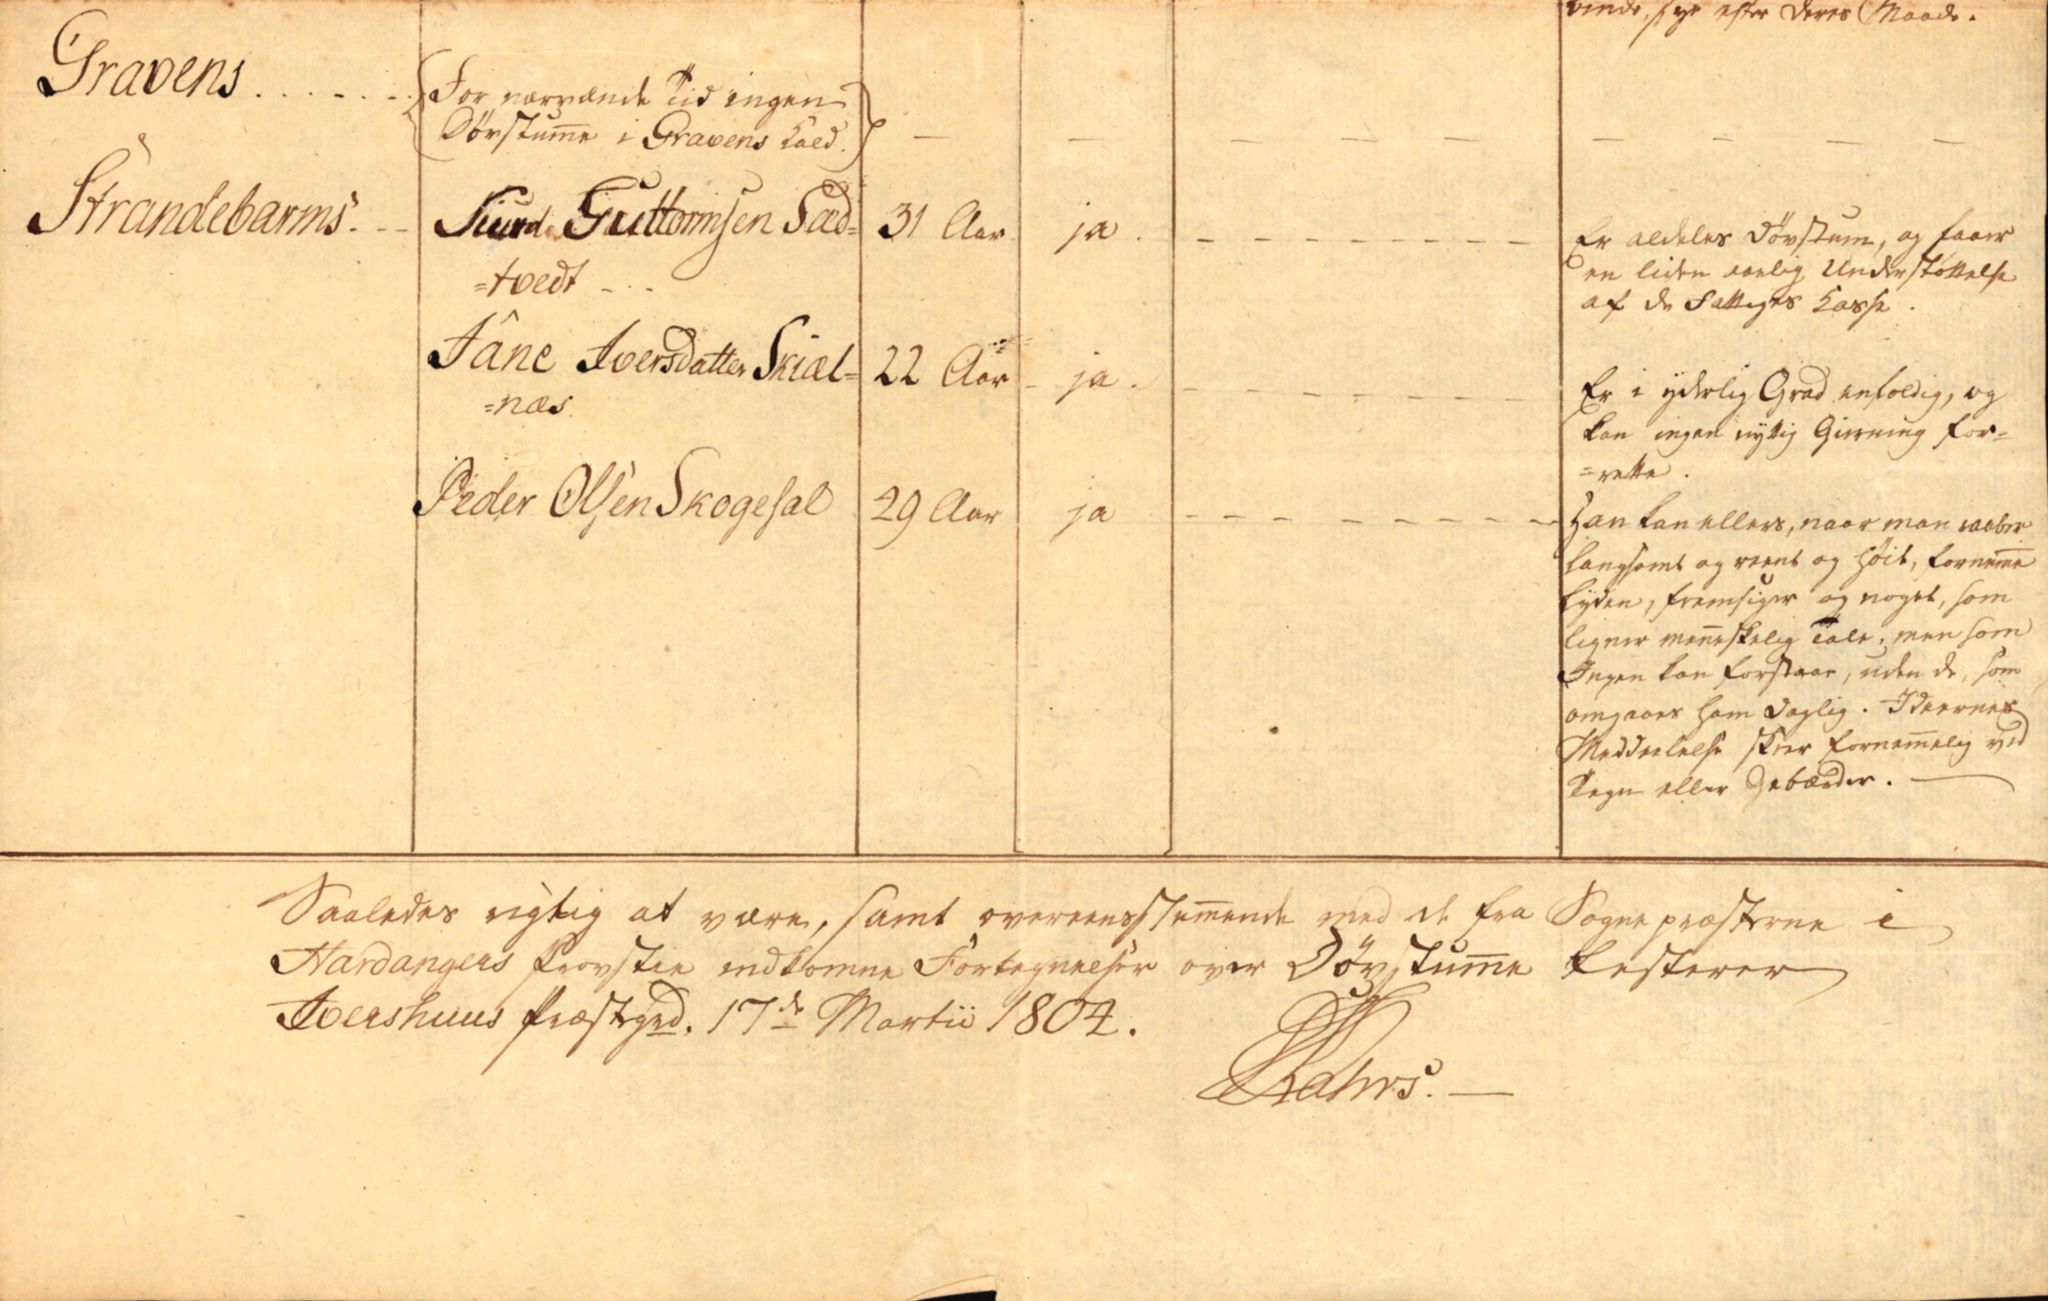 binde, sye efter deres Maade.
Gravens . . . . . . .
For nærværende Tid ingen
Døvstum̅e i Gravens Kald.
Strandebarms. - -
Siurd Guttormsen Sæd=
=tvedt - . .
31 Aar
ja .
Er aldeles Døvstum, og faaer
en liden aarlig Understøttelse
af de Fattiges Kasse .
Jâne Iversdatter Skiæl=
=næs
22 Aar
ja .
Er i yderlig Grad enfoldig, og
kan ingen nyttig Gierning for=
=rette .
Peder Olsen Skogesal
29 Aar
ja
Han kan ellers, naar man raaber
langsomt og reent og høit, fornem̅e
Lyden, fremsiger og noget, som
ligner men̅eskelig Tale, men som
Ingen kan forstaae, uden de, som
omgaaes ham daglig . Ideernes
Meddeelelse skeer fornem̅elig ved
Tegn eller Gebærder . —
Saaledes rigtig at være, samt overeensstem̅ende med de fra Sognepræsterne i
Hardangers Provstie indkomne Fortegnelser over Døvstum̅e testerer
Ivershuus Præstegrd. 17de Martii 1804.
Dahrs. —